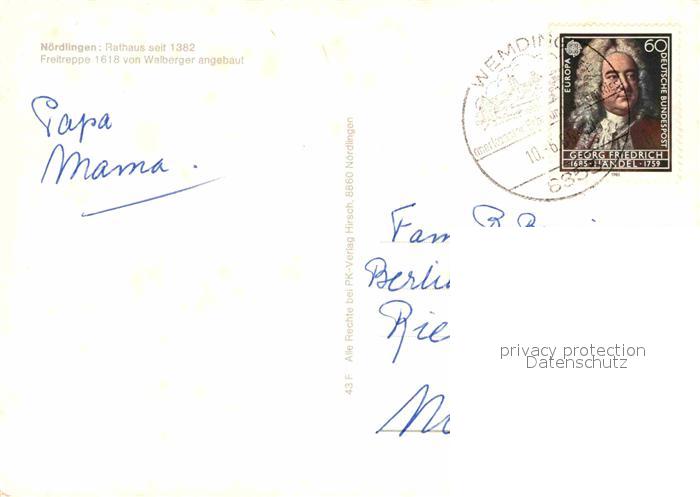 Nördlingen: Rathaus seit 1382
Freitreppe 1618 von Walberger angebaut
Papa
Mama.
43 F Alle Rechte bei PK-Verlag Hirsch, 8860 Nördlingen
WEMDING
10.-6.
EUROPA
60
DEUTSCHE BUNDESPOST
GEORG FRIEDRICH
1685 · HÄNDEL · 1759
1985
Fam
Berlin
Rie
privacy protection
Datenschutz